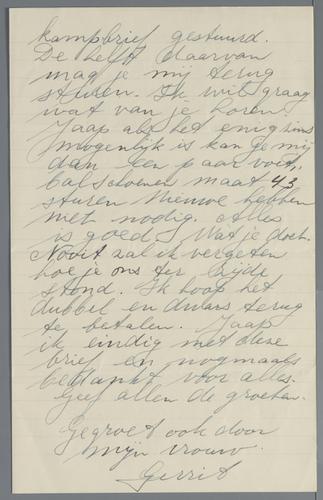 kampbrief gestuurd.
De helft daarvan
mag je mij terug
sturen. Ik wil graag
wat van je horen.
Jaap als het enigzins
mogenlijk is kan je mij
dan een paar voet,
balschoenen maat 43
sturen Nieuwe hebben
niet nodig. Alles
is goed. Wat je doet.
Nooit zal ik vergeten
hoe je ons ter zijde
stond. Ik hoop het
dubbel en dwars terug
te betalen. Jaap
ik eindig met deze
brief en nogmaals
bedankt voor alles.
Geef allen de groeten.
Gegroet ook door
mijn vrouw.
Gerrit